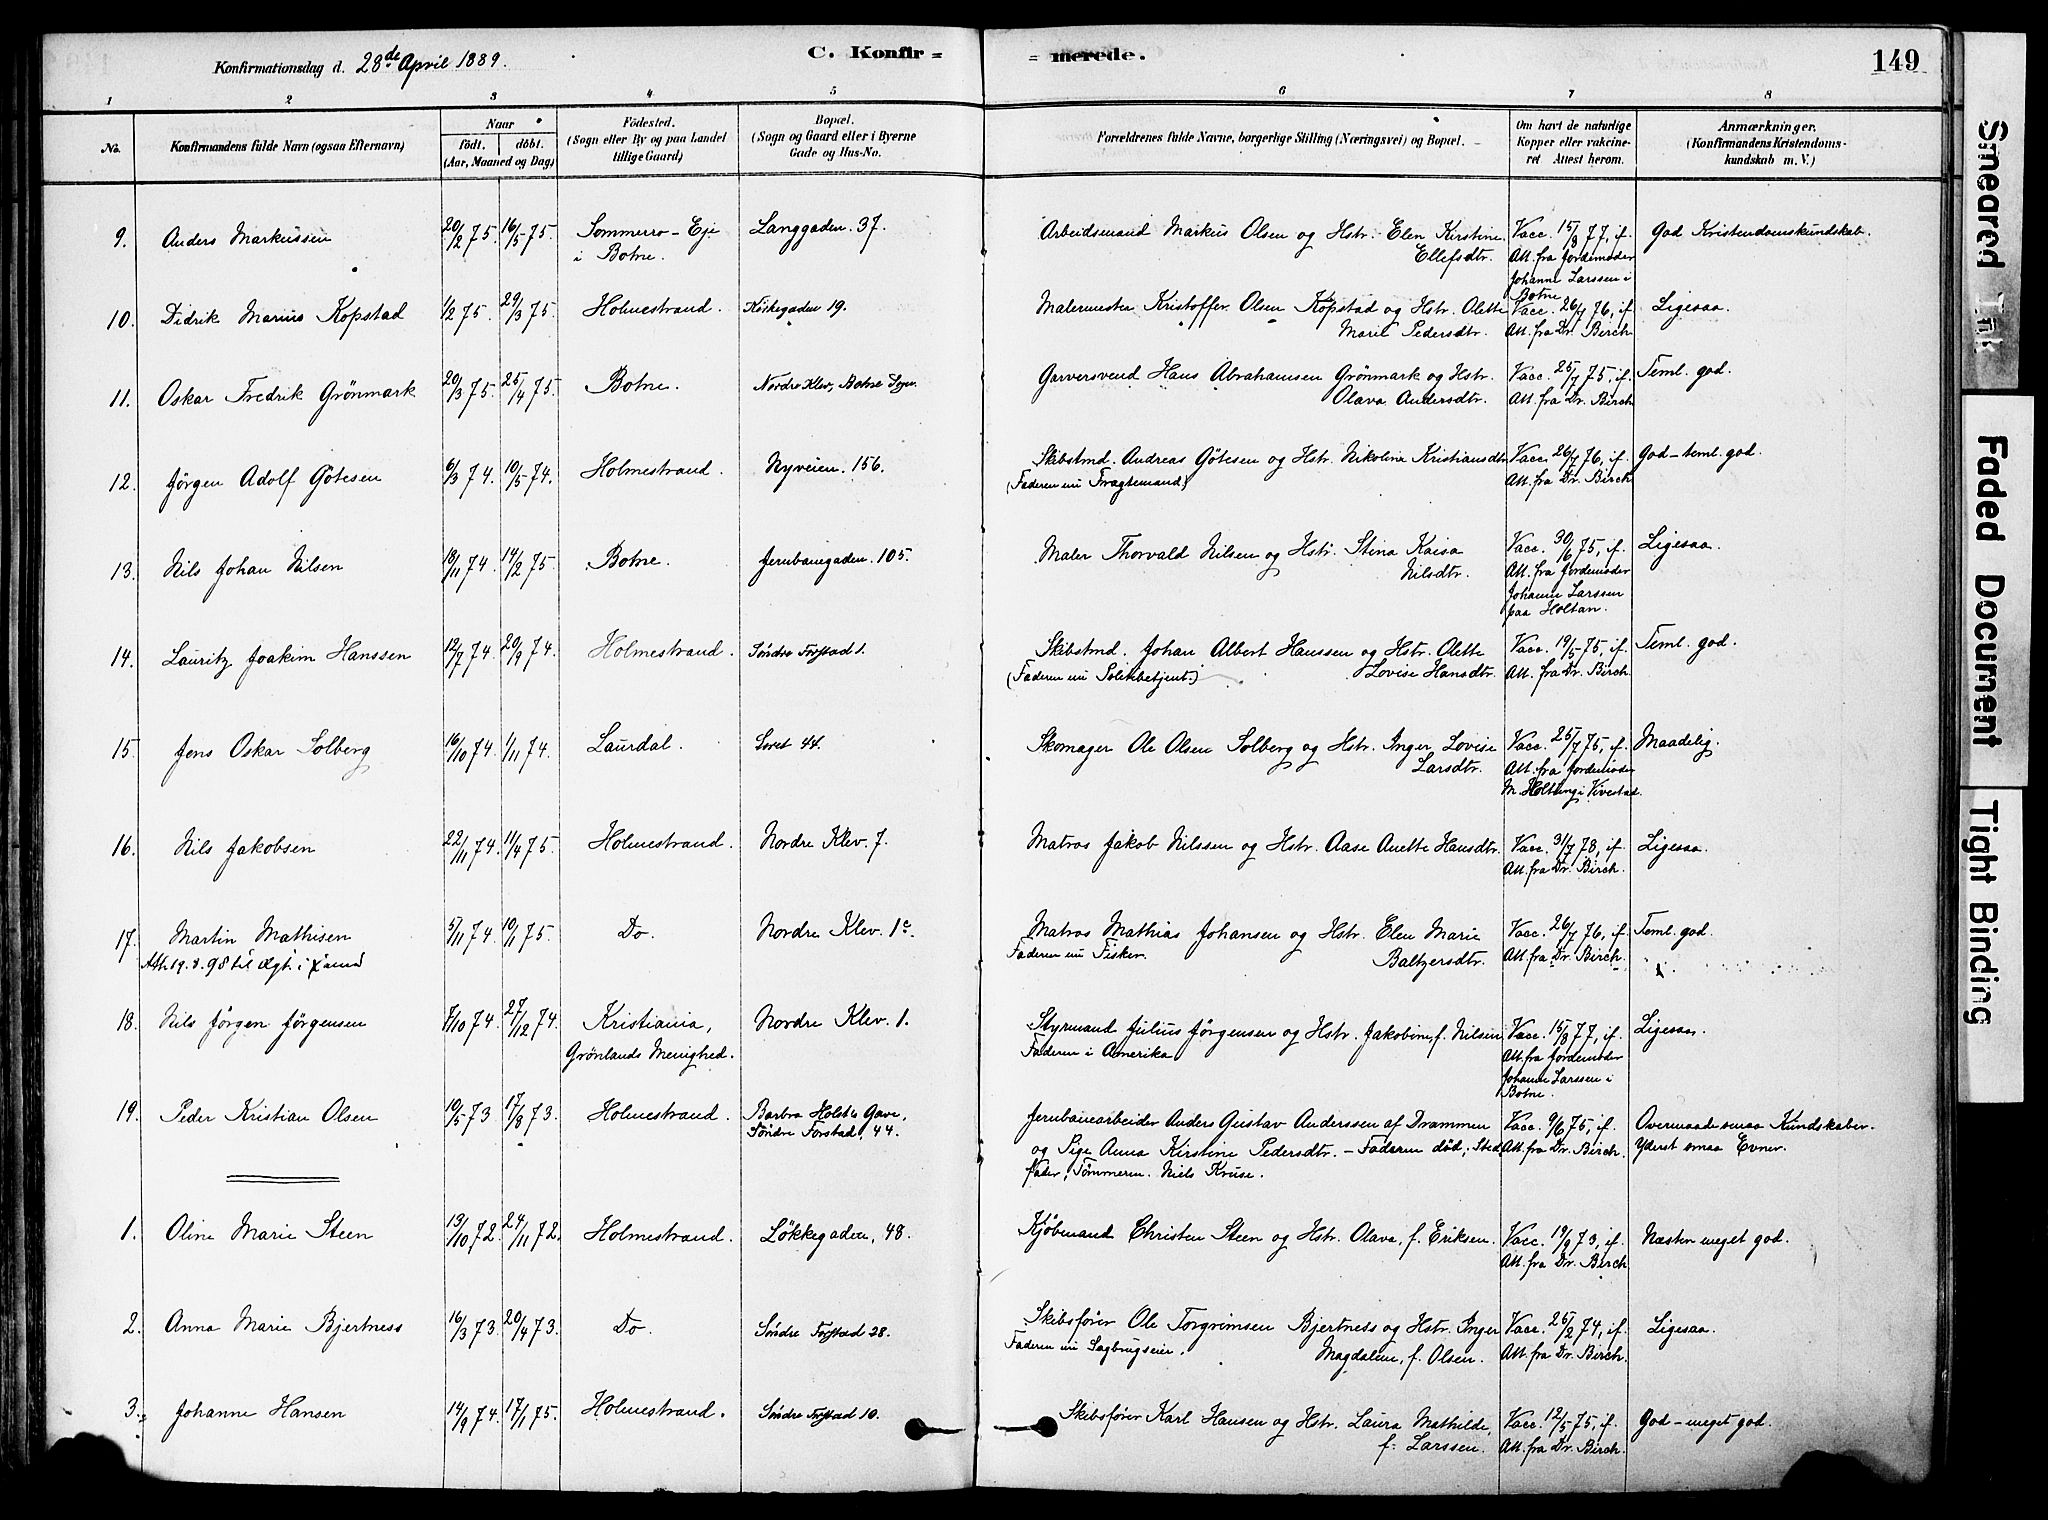 Konfirmationsdag d. 28de April 1889.
C. Konfir=
=merede.
149
1 2 3 4 5 6 7 8
No.
Konfirmandens fulde Navn (ogsaa Efternavn)
Naar
født. døbt.
(Aar, Maaned og Dag)
Fødested.
(Sogn eller By og paa Landet
tillige Gaard)
Bopæl.
(Sogn og Gaard eller i Byerne
Gade og Hus-No.
Forældrenes fulde Navne, borgerlige Stilling (Næringsvei) og Bopæl.
Om havt de naturlige
Kopper eller vakcine-
ret Attest herom.
Anmærkninger.
(Konfirmandens Kristendoms-
kundskab m. V.)
9. Anders Markussen 20/2 75. 16/5 75. Sommerro-Eje Langgaden. 37. Arbeidsmand Markus Olsen og Hstr. Elen Kirstine Vacc. 15/8 77, if. God Kristendomskundskab.
i Botne. Ellefsdtr. Att. fra Jordemoder
Johanne Larssen i
Botne
10. Didrik Marius Kopstad 1/2 75. 29/3 75. Holmestrand. Kirkegaden 19. Malermester Kristoffer Olsen Kopstad og Hstr. Olette Vacc. 26/7 76, if. Ligesaa.
Marie Pedersdtr. Att. fra Dr. Birch
11. Oskar Fredrik Grönmark 20/3 75. 25/4 75. Botne. Nordre Klev, Botne Sogn. Garversvend Hans Abrahamsen Grönmark og Hstr. Vacc. 25/7 75, if. Teml. god.
Olava Andersdtr. Att. fra Dr. Birch
12. Jörgen Adolf Götesen 6/3 74. 10/5 74. Holmestrand. Nyveien. 156. Skibstmd. Andreas Götesen og Hstr. Nikoline Kristiansdtr Vacc. 26/7 76, if. God-teml. god.
(Faderen nu Fragtemand.) Att. fra Dr. Birch
13. Nils Johan Nilsen 18/11 74. 14/2 75 Botne. Jernbanegaden. 105. Maler Thorvald Nilsen og Hstr. Stina Kaisa Vacc. 30/6 75, if. Ligesaa.
Nilsdtr. Att. fra Jordemoder
Johanne Larssen
paa Holtan.
14. Lauritz Joakim Hanssen 12/7 74. 20/9 74. Holmestrand. Söndre Forstad 1. Skibstmd. Johan Albert Hanssen og Hstr. Olette Vacc. 19/5 75, if. Teml. god.
(Faderen nu Politibetjent.) Lovise Hansdtr. Att. fra Dr. Birch.
15 Jens Oskar Solberg 16/10 74. 1/11 74. Laurdal. 44. Skomager Ole Olsen Solberg og Hstr. Inger Lovise Vacc. 25/7 75, if. Maadelig.
Larsdtr. Att. fra Jordemoder
M. Holtung i Kivestad.
16. Nils Jakobsen 22/11 74. 11/4 75. Holmestrand. Nordre Klev. 7. Matros Jakob Nilssen og Hstr. Aase Anette Hansdtr. Vacc. 31/7 78, if. Ligesaa.
Att. fra Dr. Birch.
17. Martin Mathisen 5/11 74. 10/1 75. Do. Nordre Klev. 1c. Matros Mathias Johansen og Hstr. Elen Marie Vacc. 26/7 76, if. Teml. god.
Att. 19.8.98 til ægt. i Xania Faderen nu Fisker. Baltzersdtr. Att. fra Dr. Birch.
18. Nils Jörgen Jörgensen 7/10 74. 27/12 74. Kristiania, Nordre Klev. 1. Styrmand Julius Jörgensen og Hstr. Jakobine, f. Nilsen Vacc. 15/8 77, if. Ligesaa.
Grönlands Menighed. Faderen i Amerika Att. fra Jordemoder
Johanne Larssen i
Botne.
19. Peder Kristian Olsen 10/5 73 17/8 73. Holmestrand. Barbra Holsts Gave, Jernbanearbeider Anders Gustav Anderssen af Drammen Vacc. 9/6 75, if. Overmaade smaa Kundskaber.
Söndre Forstad, 44. og Pige Anna Kirstine Pedersdtr. - Faderen död; Sted Att. fra Dr. Birch. Yderst smaa Evner.
fader, Tömmerm. Niels Kruse.
1. Oline Marie Steen 13/10 72. 24/11 72. Holmestrand. Lökkegaden, 48. Kjöbmand Christen Steen og Hstr. Olava, f. Eriksen. Vacc. 19/9 73, if. Næsten meget god.
Att. fra Dr. Birch
2. Anna Marie Bjertness 16/3 73. 20/4 73. Do. Söndre Forstad 28. Skibsförer Ole Torgrimsen Bjertness og Hstr. Inger Vacc. 25/2 74, if. Ligesaa.
Faderen nu Sagbrugseier. Magdalene, f. Olsen. Att. fra Dr. Birch.
3. Johanne Hansen 14/9 74. 17/1 75. Holmestrand. Söndre Forstad 10. Skibsförer Karl Hansen og Hstr. Laura Mathilde, Vacc. 12/5 75, if. God-meget god.
f. Larssen. Att. fra Dr. Birch.
Smeared Ink
Faded Document
Tight Binding